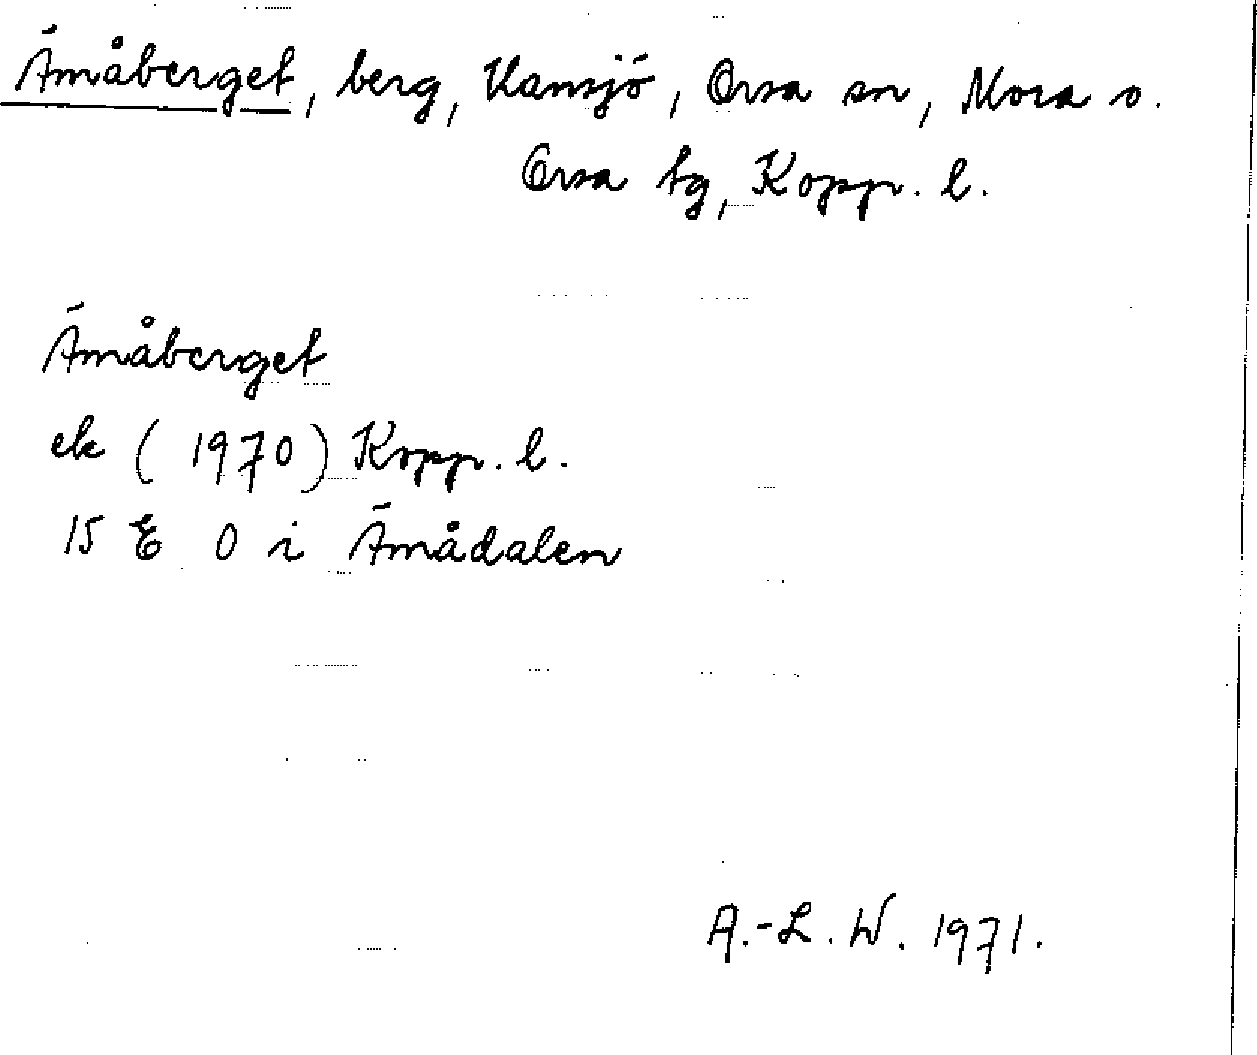 Ämåberget, berg, Hansjö, Orsa sn, Mora o.
Orsa tg, Kopp. l.
Ämåberget
ek (1970) Kopp. l.
15 E 0 i Ämådalen
A.-L. W. 1971.